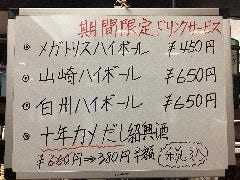 期間限定ドリンクサービス
・メガトリスハイボール ¥450円
・山崎ハイボール ¥650円
・白州ハイボール ¥650円
・十年カメだし紹興酒
¥680円→380円